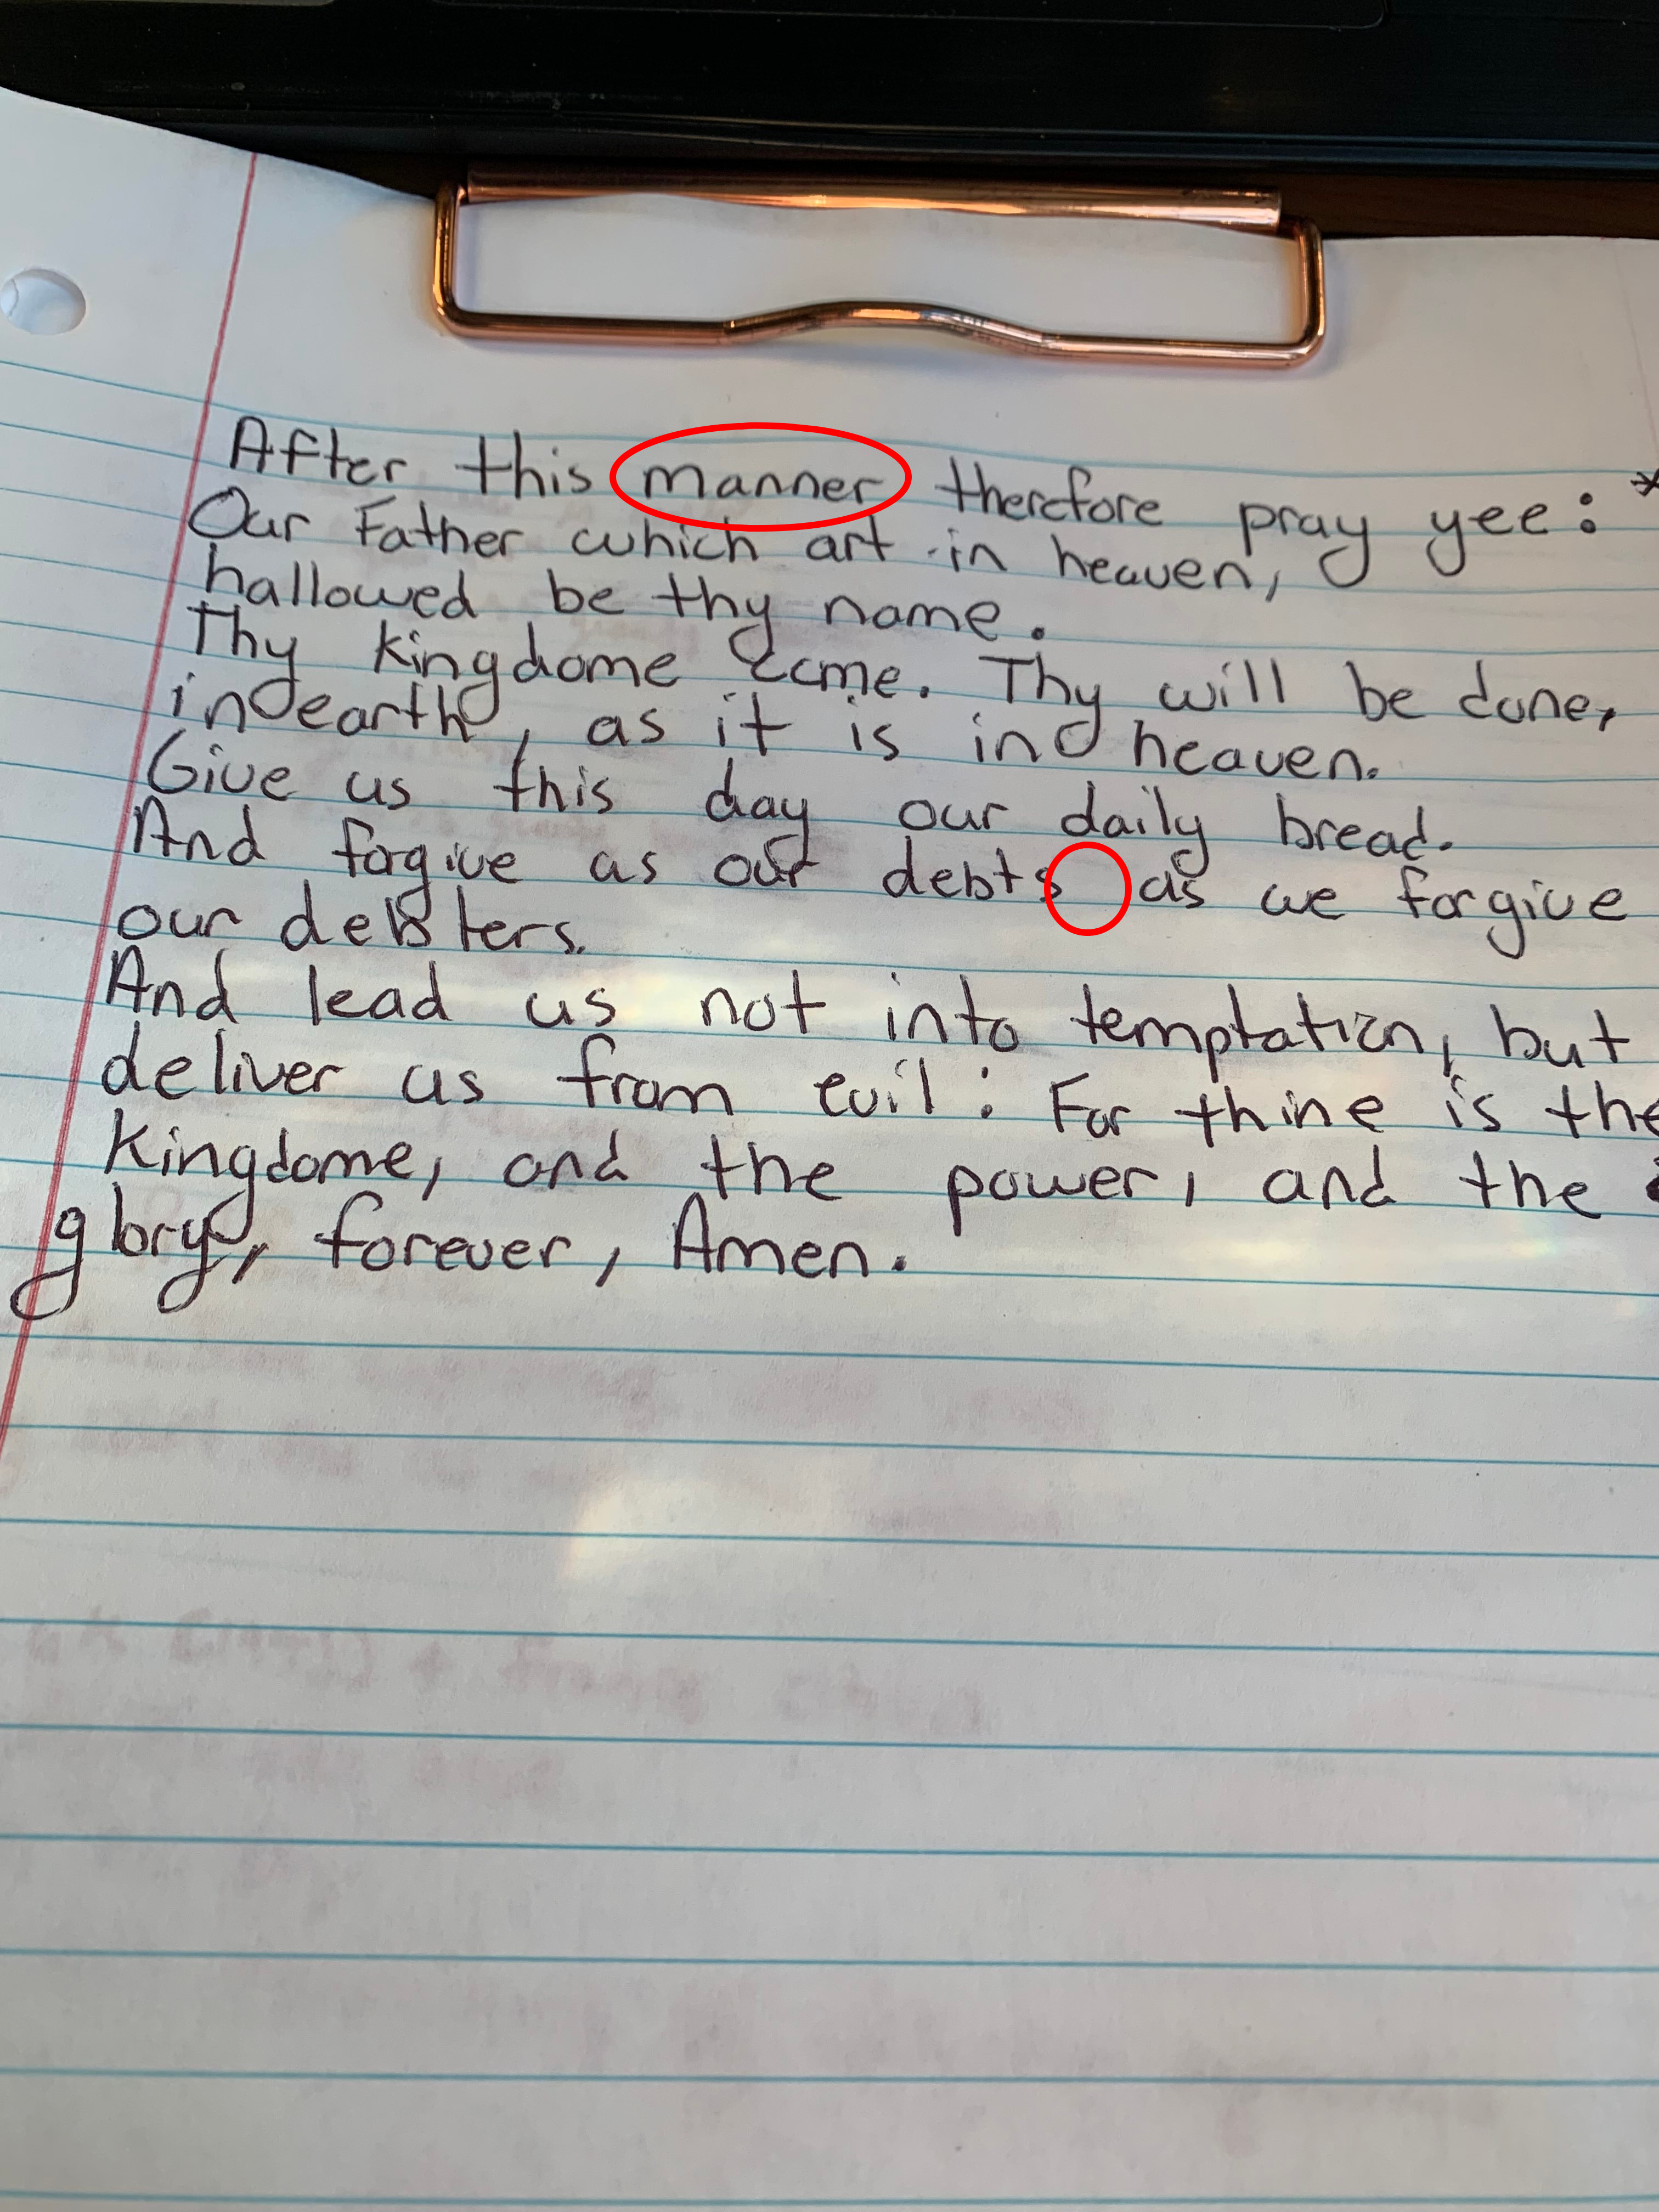 After this manner therefore pray yee: *
Our Father which art in heaven,
hallowed be thy name.
Thy kingdome come. Thy will be done,
in earth, as it is in heaven.
Give us this day our daily bread.
And forgive us our debts as we forgive
our debters.
And lead us not into temptation, but
deliver us from evil: For thine is the
kingdome, and the power, and the
glory, forever, Amen.